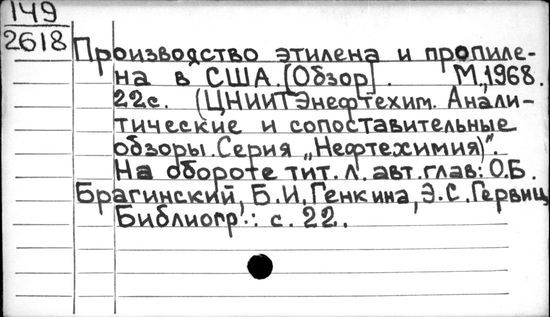 149
2618
Производство этилена и пропиле-
на в США. [Обзор]. М., 1968.
22с. (ЦНИИТЭнефтехим. Анали-
тические и сопоставительные
обзоры. Серия „Нефтехимия)".
На обороте тит. л. авт. глав: О.Б.
Брагинский, Б.И. Генкина, Э.С. Гервиц
Библиогр.: с. 22.